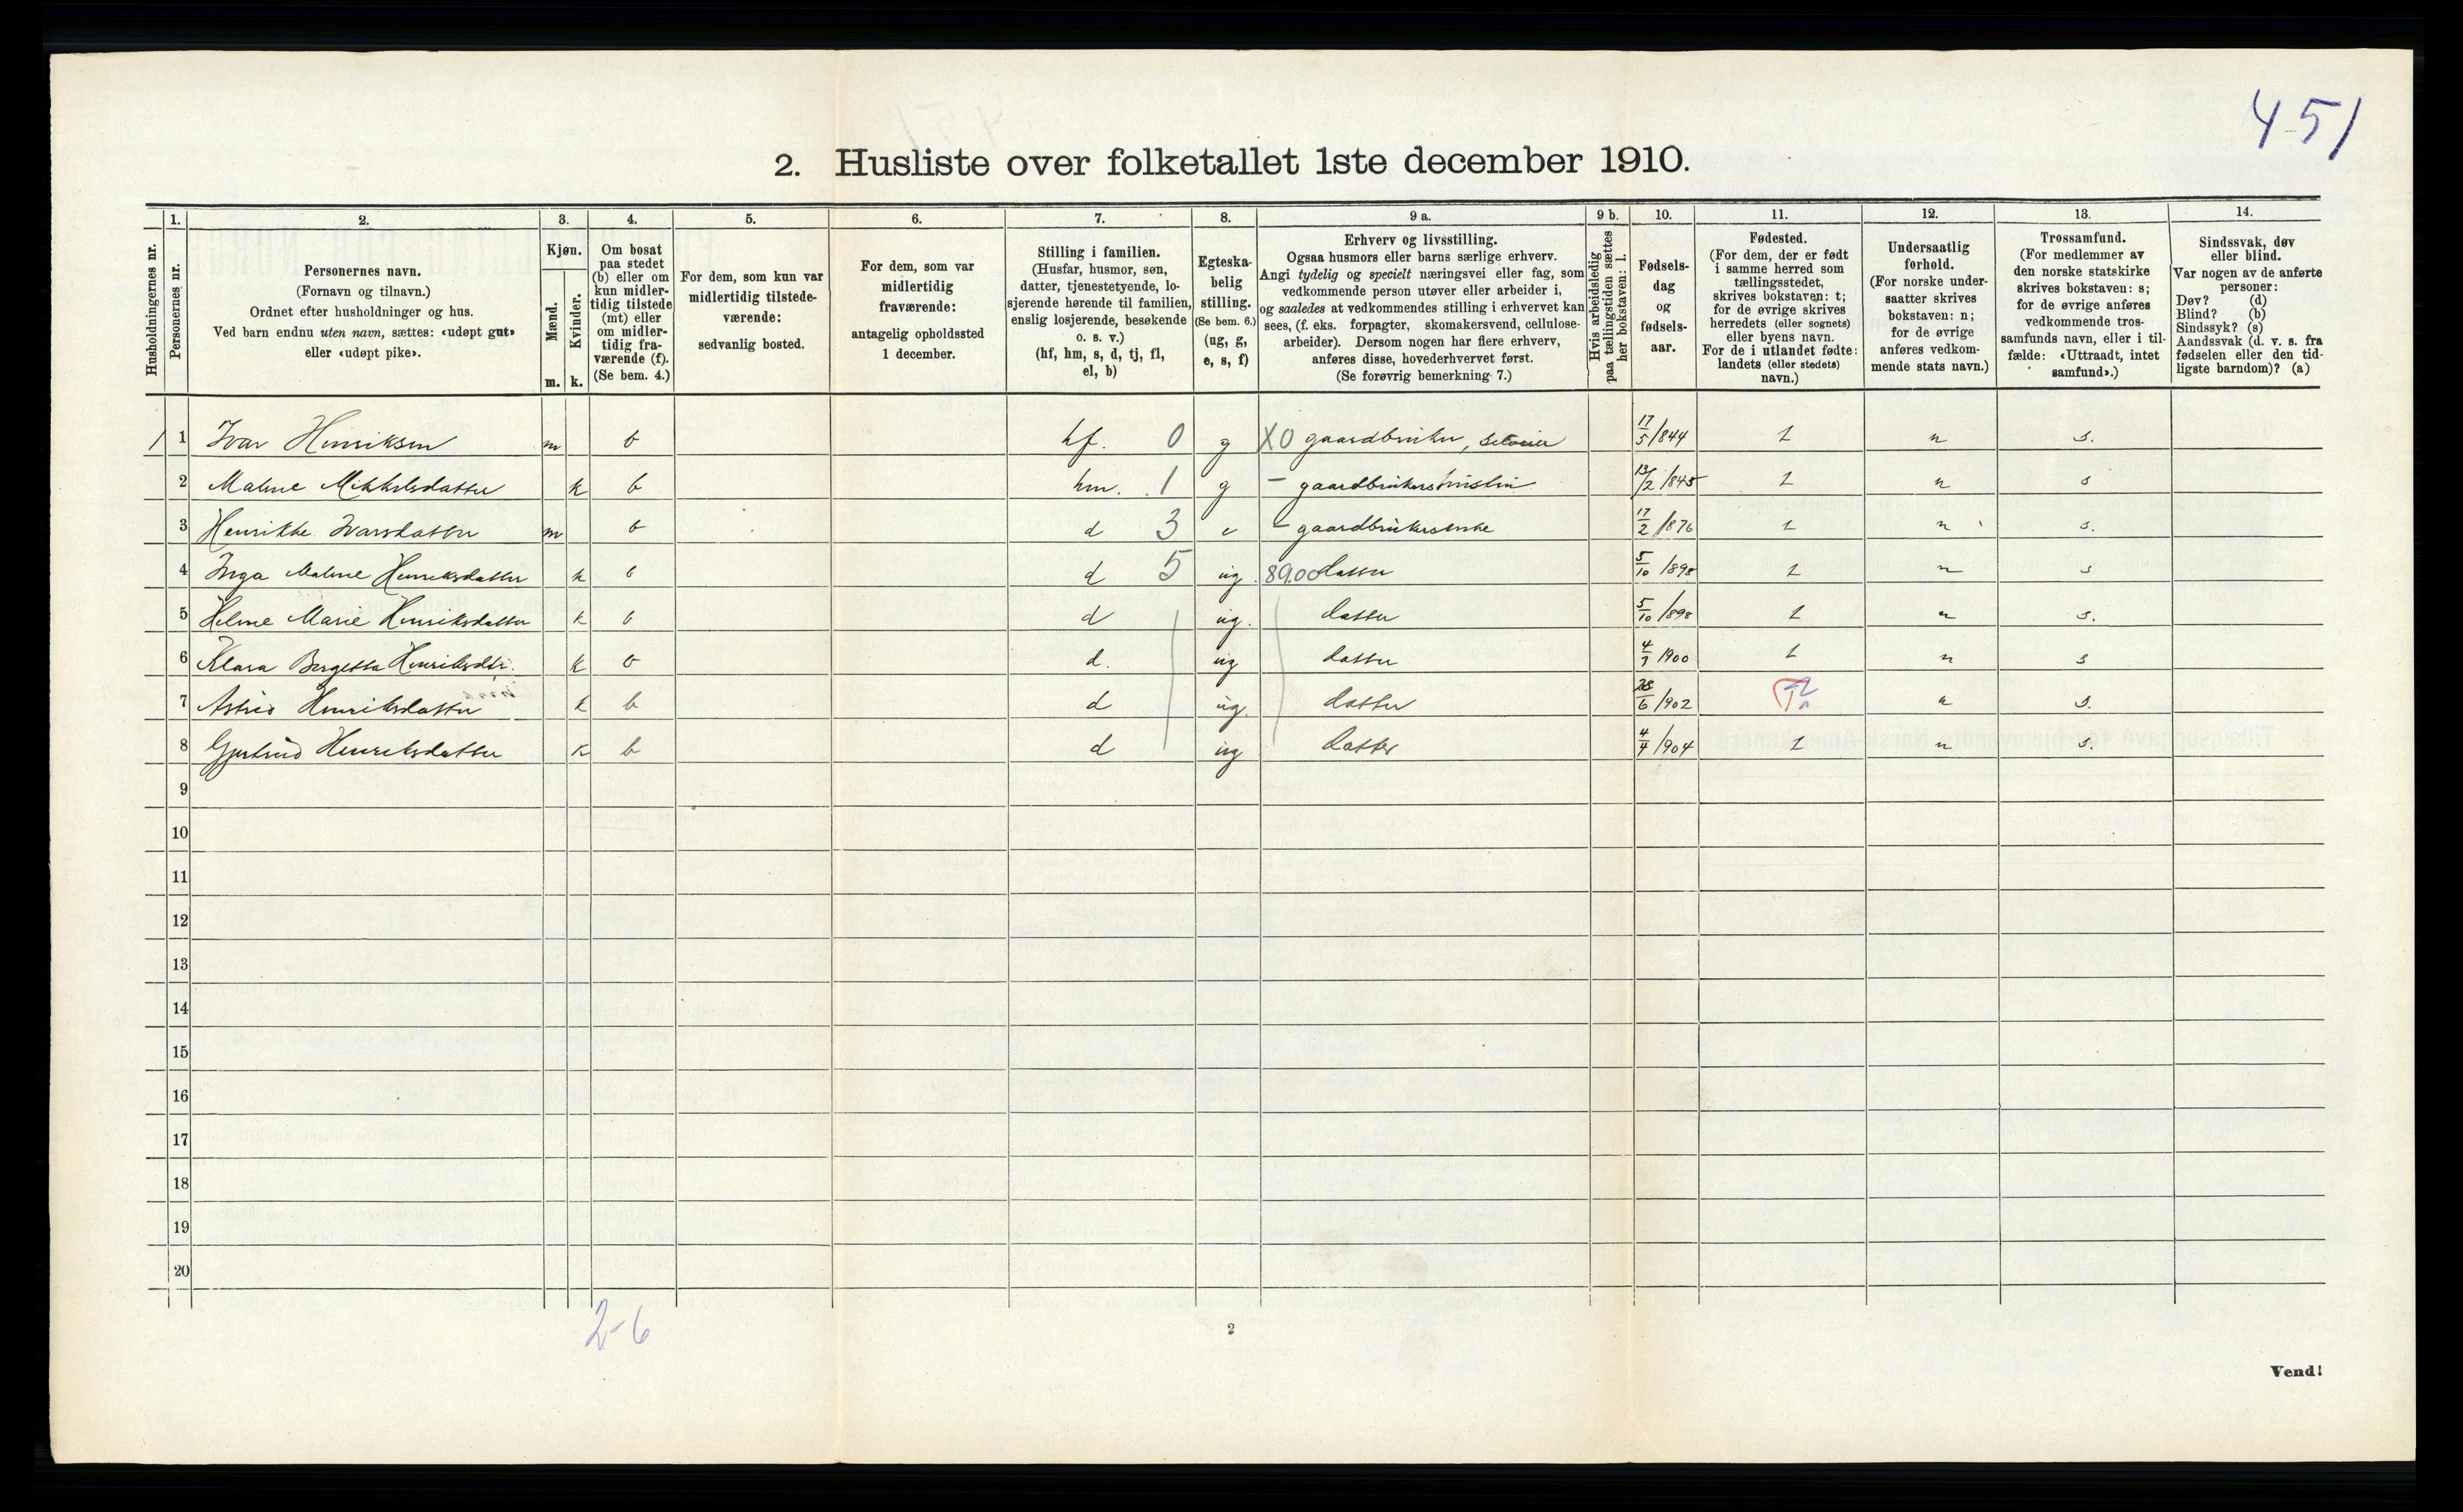 451
2. Husliste over folketallet 1ste december 1910.
Husholdningernes nr.
1. Personernes nr.
2. Personernes navn.
(Fornavn og tilnavn.)
Ordnet efter husholdninger og hus.
Ved barn endnu uten navn, sættes: «udøpt gut»
eller «udøpt pike».
3. Kjøn.
Mænd. m.
Kvinder. k.
4. Om bosat
paa stedet
(b) eller om
kun midler-
tidig tilstede
(mt) eller
om midler-
tidig fra-
værende (f).
(Se bem. 4.)
5. For dem, som kun var
midlertidig tilstede-
værende:
sedvanlig bosted.
6. For dem, som var
midlertidig
fraværende:
antagelig opholdssted
1 december.
7. Stilling i familien.
(Husfar, husmor, søn,
datter, tjenestetyende, lo-
sjerende hørende til familien,
enslig losjerende, besøkende
o. s. v.)
(hf, hm, s, d, tj, fl,
el, b)
8. Egteska-
belig
stilling.
(Se bem. 6.)
(ug, g,
e, s, f)
9 a. Erhverv og livsstilling.
Ogsaa husmors eller barns særlige erhverv.
Angi tydelig og specielt næringsvei eller fag, som
vedkommende person utøver eller arbeider i,
og saaledes at vedkommendes stilling i erhvervet kan
sees, (f. eks. forpagter, skomakersvend, cellulose-
arbeider). Dersom nogen har flere erhverv,
anføres disse, hovederhvervet først.
(Se forøvrig bemerkning 7.)
9 b. Hvis arbeidsledig
paa tællingstiden sættes
her bokstaven: l.
10. Fødsels-
dag
og
fødsels-
aar.
11. Fødested.
(For dem, der er født
i samme herred som
tællingsstedet,
skrives bokstaven: t;
for de øvrige skrives
herredets (eller sognets)
eller byens navn.
For de i utlandet fødte:
landets (eller stedets)
navn.)
12. Undersaatlig
forhold.
(For norske under-
saatter skrives
bokstaven: n;
for de øvrige
anføres vedkom-
mende stats navn.)
13. Trossamfund.
(For medlemmer av
den norske statskirke
skrives bokstaven: s;
for de øvrige anføres
vedkommende tros-
samfunds navn, eller i til-
fælde: «Uttraadt, intet
samfund».)
14. Sindssvak, døv
eller blind.
Var nogen av de anførte
personer:
Døv? (d)
Blind? (b)
Sindssyk? (s)
Aandssvak (d. v. s. fra
fødselen eller den tid-
ligste barndom)? (a)
1 1 Ivar Henriksen m b hf. 0 g X0 gaardbruker, selveier 17/5/844 t n s.
2 Malene Mikkelsdatter k b hm. 1 g - gaardbrukers hustru 13/2/845 t n s
3 Henrikke Ivarsdatter m b d 3 e - gaardbrukersenke 17/2/876 t n s.
4 Inga Malene Henriksdatter k b d 5 ug. 89.00 datter 5/10/898 t n s
5 Helene Marie Henriksdatter k b d ug. datter 5/10/898 t n s.
6 Klara Bergetta Henriksdtr. k b d. ug datter 1900 t n s
7 Astrid Henriksdatter k b d ug. datter 28/6/902 n s.
8 Gjertrud Henriksdatter k b d ug datter 4/4/904 t n s.
9
10
11
12
13
14
15
16
17
18
19
20
2-6
2
Vend!